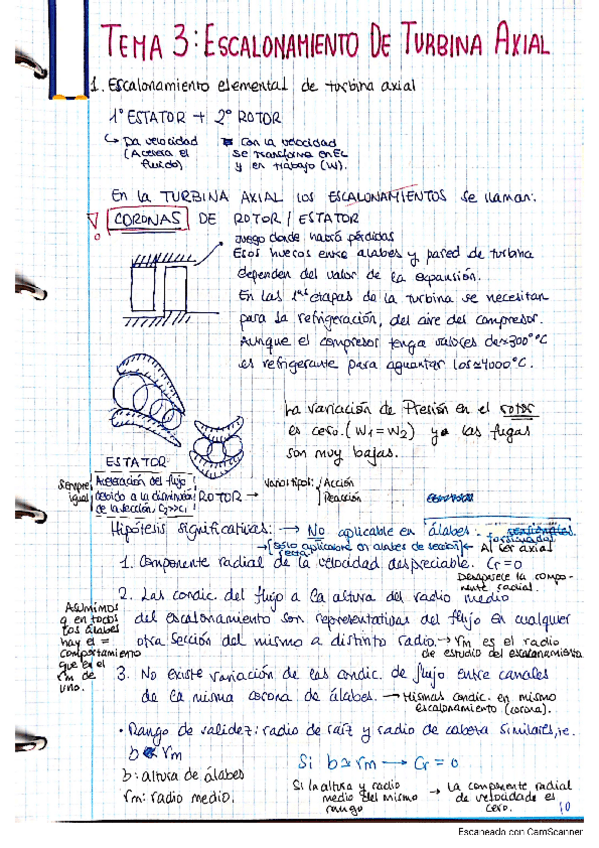 TEMA 3: ESCALONAMIENTO DE TURBINA AXIAL
1. Escalonamiento elemental de turbina axial
1º ESTATOR + 2º ROTOR
↳ Da velocidad
(Acelera el
fluido)
Con la velocidad
se transforma en EC
y en trabajo (W).
En la TURBINA AXIAL los ESCALONAMIENTOS se llaman:
CORONAS DE ROTOR / ESTATOR
Juego donde habrá pérdidas
Esos huecos entre alabes y pared de turbina
dependen del valor de la expansión.
En las 1ras etapas de la turbina se necesitan
para la refrigeración, del aire del compresor.
Aunque el compresor tenga valores de ≈300°C
es refrigerante para aguantar los ≃4000°C.
La variación de Presión en el rotor
es cero. (W1 = W2) y las fugas
son muy bajas.
ESTATOR
Siempre
igual
Aceleración del flujo
debido a la disminución
de la sección, C2>>C1
ROTOR →
Varios tipos:
Acción
Reacción
Hipótesis significativas: → No aplicable en álabes
→ Sólo aplicable en alabes de sección ← Al ser axial
1. Componente radial de la velocidad despreciable. Cr = 0
Desaparece la compo-
nente radial.
2. Las condic. del flujo a la altura del radio medio
del escalonamiento son representativas del flujo en cualquier
otra sección del mismo a distinto radio. → rm es el radio
de estudio del escalonamiento
Asumimos
q en todos
los álabes
hay el =
comportamiento
que en el
rm de
uno.
3. No existe variación de las condic. de flujo entre canales
de la misma corona de álabes. → Mismas condic. en mismo
escalonamiento (corona).
• Rango de validez: radio de raíz y radio de cabeza similares, ie.
b rm
Si b ≃ rm → Cr = 0
b: altura de álabes
rm: radio medio.
Si la altura y radio
medio del mismo
rango
→ La componente radial
de velocidad es
cero.
10
Escaneado con CamScanner